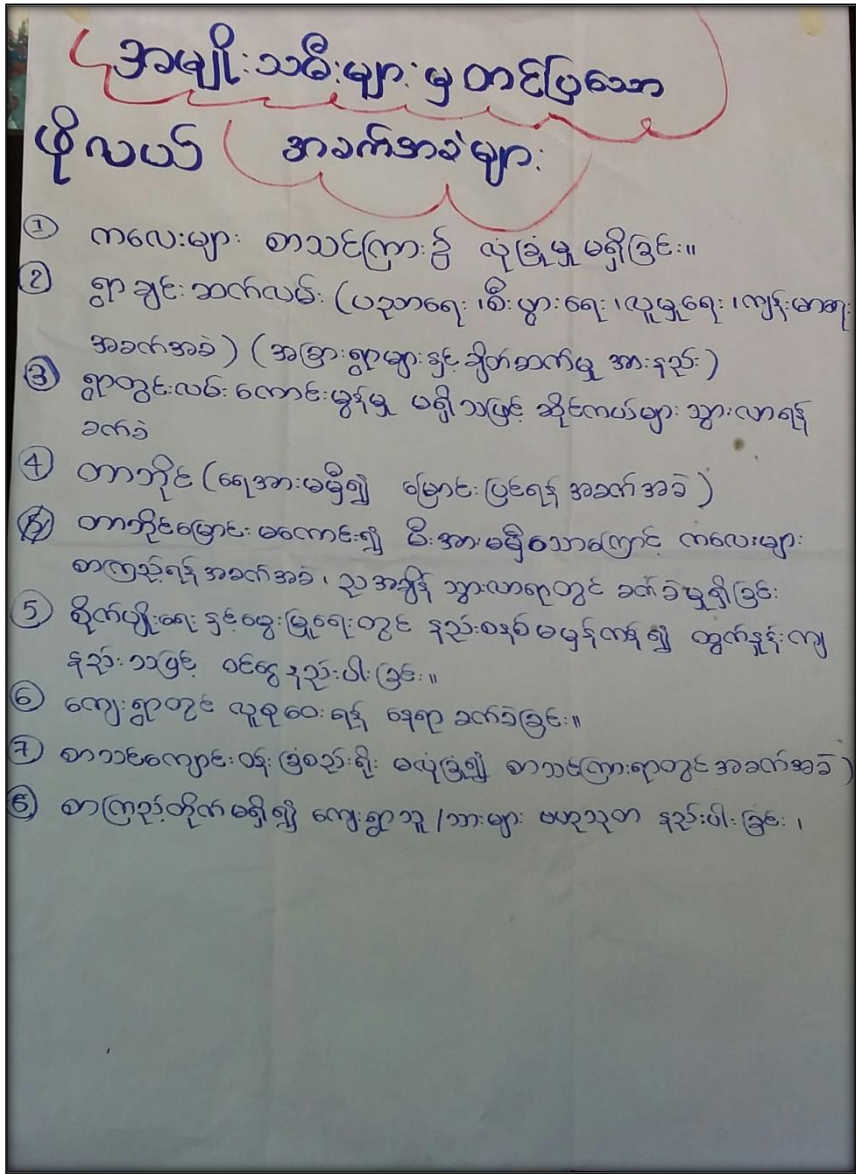 အမျိုးသမီးများမှတင်ပြသော
ဖိုလယ် အခက်အခဲများ
① ကလေးများ စာသင်ကြား၌ လုံခြုံမှုမရှိခြင်း။
② ရွာချင်းဆက်လမ်း (ပညာရေး ၊စီးပွားရေး ၊လူမှုရေး ၊ကျန်းမာရေး
အခက်အခဲ) (အခြားရွာများနှင့် ချိတ်ဆက်မှု အားနည်း)
③ ရွာတွင်းလမ်းကောင်းမွန်မှု မရှိသဖြင့် ဆိုင်ကယ်များ သွားလာရန်
ခက်ခဲ
④ တာဘိုင် (ရေအားမမှီ၍ မြောင်းပြင်ရန် အခက်အခဲ)
တာဘိုင်မြောင်းမကောင်း၍ မီးအားမမှီသောကြောင့် ကလေးများ
စာကြည့်ရန်အခက်အခဲ၊ ညအချိန် သွားလာရာတွင် ခက်ခဲမှုရှိခြင်း
⑤ စိုက်ပျိုးရေးနှင့်မွေးမြူရေးတွင် နည်းစနစ်မမှန်ကန်၍ ထွက်နှုန်းကျ
နည်းသဖြင့် ဝင်ငွေနည်းပါးခြင်း။
⑥ ကျေးရွာတွင် လူစုဝေးရန် နေရာ ခက်ခဲခြင်း။
⑦ စာသင်ကျောင်းဝန်းခြံစည်းရိုး မလုံခြုံ၍ စာသင်ကြားရာတွင်အခက်အခဲ)
⑧ စာကြည့်တိုက်မရှိ၍ ကျေးရွာသူ/သားများ ဗဟုသုတ နည်းပါးခြင်း ၊